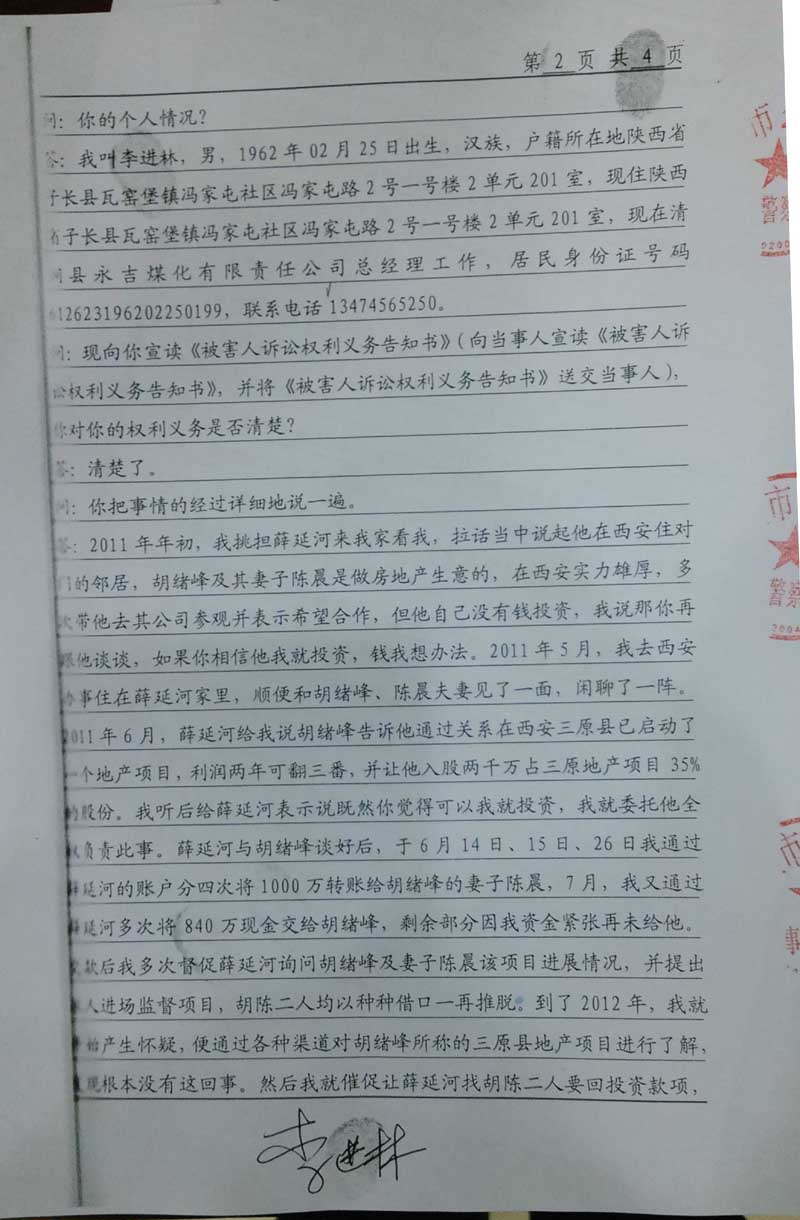 第 2 页 共 4 页
问：你的个人情况？
答：我叫李进林，男，1962 年 02 月 25 日出生，汉族，户籍所在地陕西省
子长县瓦窑堡镇冯家屯社区冯家屯路 2 号一号楼 2 单元 201 室，现住陕西
省子长县瓦窑堡镇冯家屯社区冯家屯路 2 号一号楼 2 单元 201 室，现在清
县永吉煤化有限责任公司总经理工作，居民身份证号码
12623196202250199，联系电话 13474565250。
问：现向你宣读《被害人诉讼权利义务告知书》（向当事人宣读《被害人诉
讼权利义务告知书》，并将《被害人诉讼权利义务告知书》送交当事人），
你对你的权利义务是否清楚？
答：清楚了。
问：你把事情的经过详细地说一遍。
答：2011 年年初，我挑担薛延河来我家看我，拉话当中说起他在西安住对
门的邻居，胡绪峰及其妻子陈晨是做房地产生意的，在西安实力雄厚，多
次带他去其公司参观并表示希望合作，但他自己没有钱投资，我说那你再
跟他谈谈，如果你相信他我就投资，钱我想办法。2011 年 5 月，我去西安
办事住在薛延河家里，顺便和胡绪峰、陈晨夫妻见了一面，闲聊了一阵。
2011 年 6 月，薛延河给我说胡绪峰告诉他通过关系在西安三原县已启动了
一个地产项目，利润两年可翻三番，并让他入股两千万占三原地产项目 35%
的股份。我听后给薛延河表示说既然你觉得可以我就投资，我就委托他全
权负责此事。薛延河与胡绪峰谈好后，于 6 月 14 日、15 日、26 日我通过
薛延河的账户分四次将 1000 万转账给胡绪峰的妻子陈晨，7 月，我又通过
薛延河多次将 840 万现金交给胡绪峰，剩余部分因我资金紧张再未给他。
款后我多次督促薛延河询问胡绪峰及妻子陈晨该项目进展情况，并提出
人进场监督项目，胡陈二人均以种种借口一再推脱。到了 2012 年，我就
开始产生怀疑，便通过各种渠道对胡绪峰所称的三原县地产项目进行了解，
发现根本没有这回事。然后我就催促让薛延河找胡陈二人要回投资款项，
李进林
市
警察
市
警察
2004
市